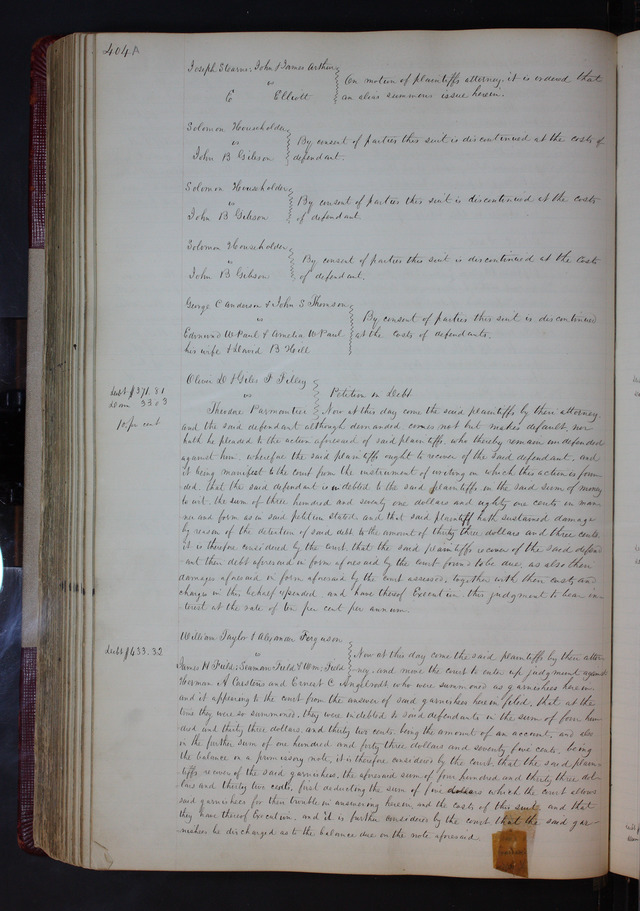 404
Joseph Stearns, John & James Arthur
vs
E Elliott
On motion of plaintiffs attorney it is ordered that
an alias summons issue herein.
Solomon Householder
vs
John B Gibson
By consent of parties this suit is discontinued at the costs of
defendant.
Solomon Householder
vs
John B Gibson
By consent of parties this suit is discontinued at the costs
of defendant.
Solomon Householder
vs
John B Gibson
By consent of parties this suit is discontinued at the costs
of defendant.
George C Anderson & John S Thomson
vs
Edmund W Paul & Amelia W Paul
his wife & David B Hill
By consent of parties this suit is discontinued
at the costs of defendants.
Oliver D & Giles F Filley
vs
Theodore Parmontier
Petition in Debt
debt $371.81
Dam 33.03
10 per cent
Now at this day come the said plaintiffs by their attorney
and the said defendant although demanded comes not but makes default, nor
hath he plended to the action aforesaid of said plaintiffs, who thereby remain undefended
against him, wherefore the said plaintiffs ought to recover of the said defendant, and
it being manifest to the court from the instrument of writing on which this action is foun-
ded, that the said defendant is indebted to the said plaintiffs in the said sum of money
to wit, the sum of three hundred and seventy one dollars and eighty one cents in man-
ner and form as in said petition stated, and that said plaintiff hath sustained damage
by reason of the detention of said debt to the amount of thirty three dollars and three cents,
it is therefore considered by the court, that the said plaintiffs recover of the said defend-
ant their debt aforesaid in form aforesaid by the court found to be due, as also their
damages aforesaid in form aforesaid by the court assessed, together with their costs and
charges in this behalf expended and have thereof Execution, this judgment to bear in-
terest at the rate of ten per cent per annum.
William Taylor & Alexman Ferguson
vs
James H Field, Seaman Field & Wm Field
debt $433.32
Now at this day come the said plaintiffs by their attor-
ney, and move the court to enter up judgment against
Herman A Carstens and Ernest C Angelrodt who were summoned as garnishees herein.
and it appearing to the court from the answer of said garnishees herein filed, that at the
time they were so summoned, they were indebted to said defendants in the sum of four hun-
dred and thirty three dollars, and thirty two cents, being the amount of an account, and also
in the further sum of one hundred and forty three dollars and seventy five cents, being
the balance on a promissory note, it is therefore considered by the court, that the said plain-
tiffs recover of the said garnishees, the aforesaid sum of four hundred and thirty three dol-
lars and thirty two cents, first deducting the sum of five dollars which the court allows
said garnishees for their trouble in answering herein, and the costs of this suit and that
they have thereof Execution. and it is further considered by the court that the said gar-
nishees be discharged as to the balance due on the note aforesaid.